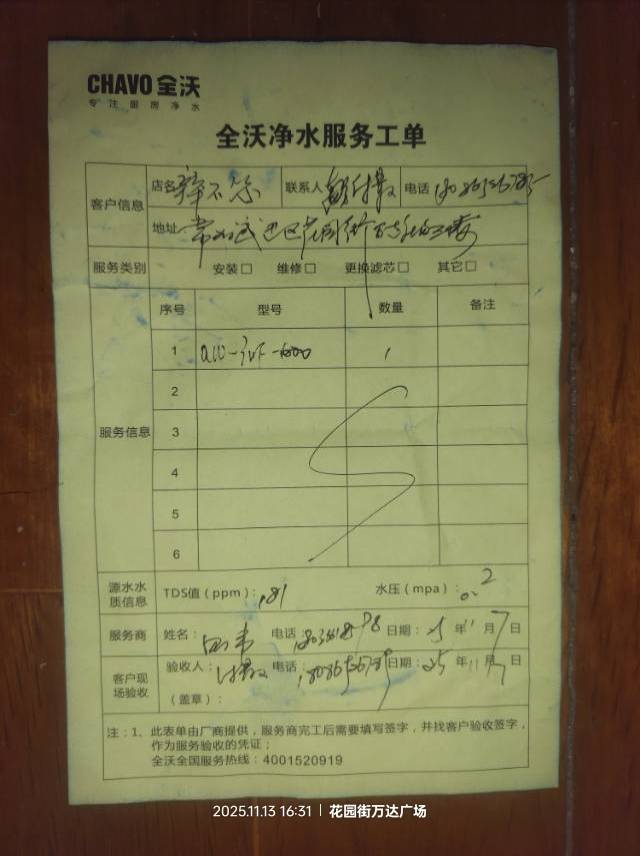 CHAVO 全沃
专注厨房净水
全沃净水服务工单
客户信息 店名 联系人 电话
地址
服务类别 安装□ 维修□ 更换滤芯□ 其它□
服务信息
序号 型号 数量 备注
1 1
2
3
4
5
6
源水水质信息 TDS值(ppm): 181 水压(mpa): 0.2
服务商 姓名: 电话 日期: 25年11月7日
客户现场验收 验收人: 电话: 日期: 25年11月7日
(盖章):
注:1、此表单由厂商提供,服务商完工后需要填写签字,并找客户验收签字,
作为服务验收的凭证;
全沃全国服务热线:4001520919
2025.11.13 16:31 | 花园街万达广场